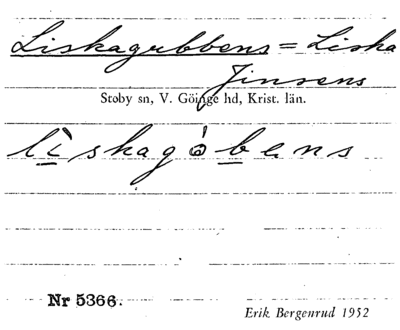 Liskagubbens = Liska
Jinsens
Stoby sn, V. Göinge hd, Krist. län.
lìskagòbens
Nr 5366.
Erik Bergenrud 1952